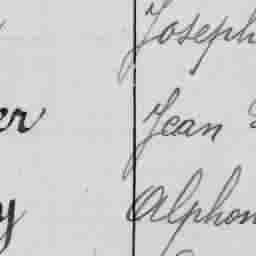 Joseph
er Jean
y Alphon